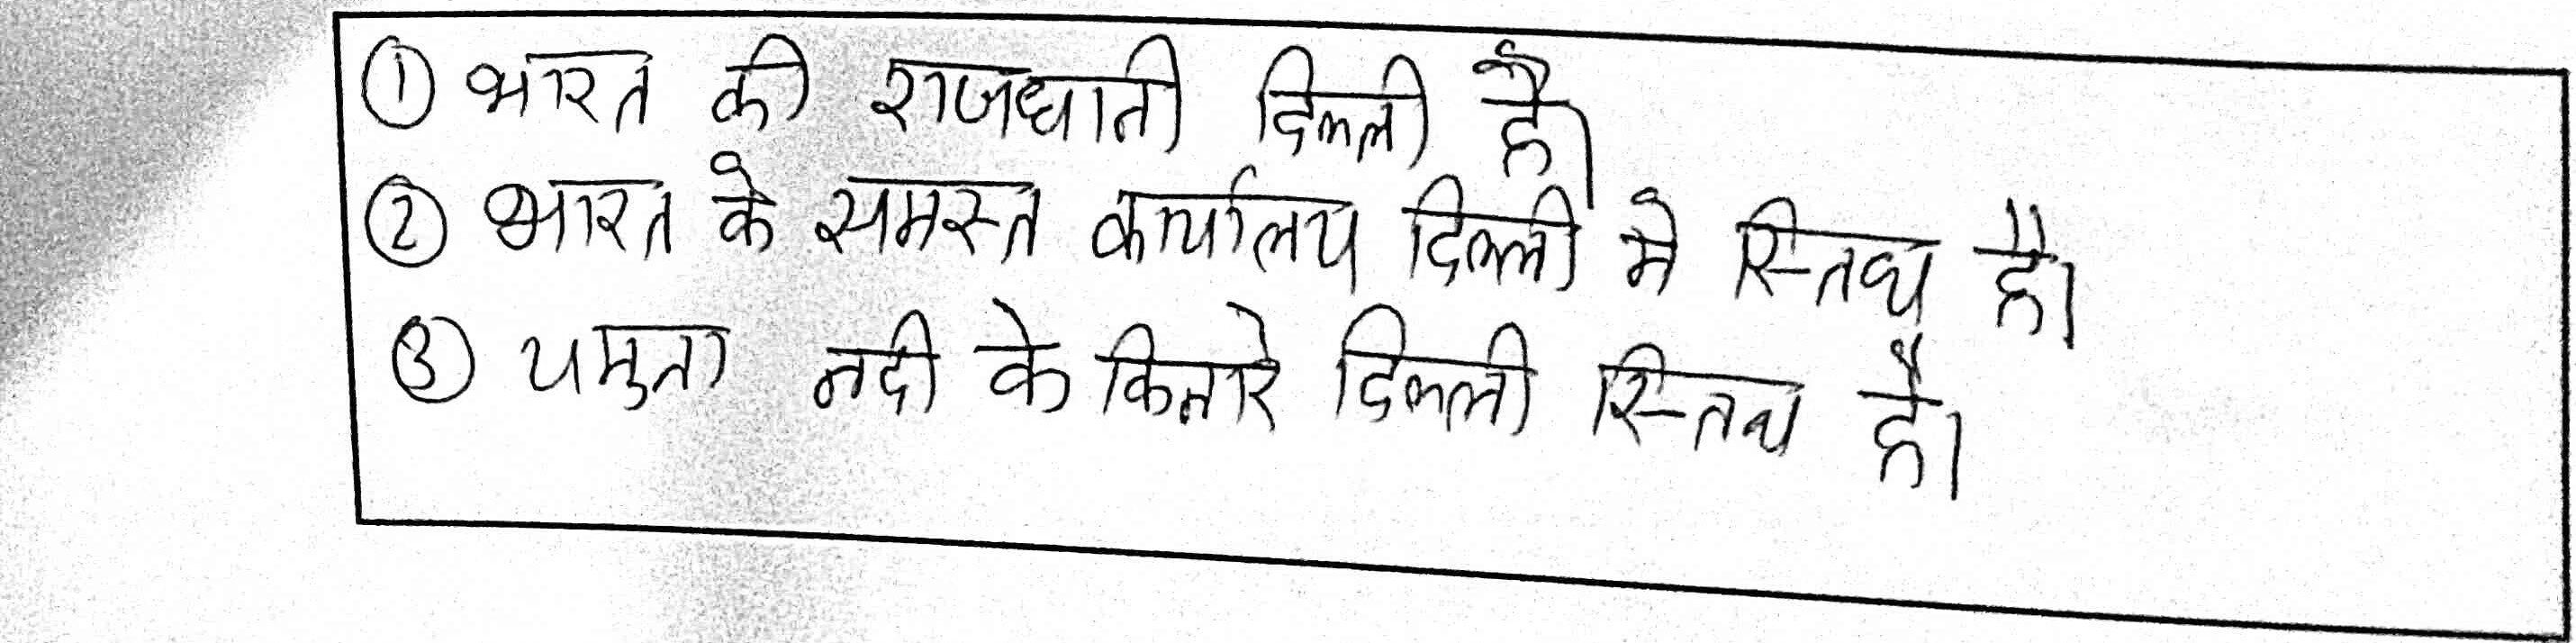 ① भारत की राजधानी दिल्ली है।
② भारत के समस्त कार्यालय दिल्ली मे स्तिथ है।
③ यमुना नदी के किनारे दिल्ली स्तिथ है।